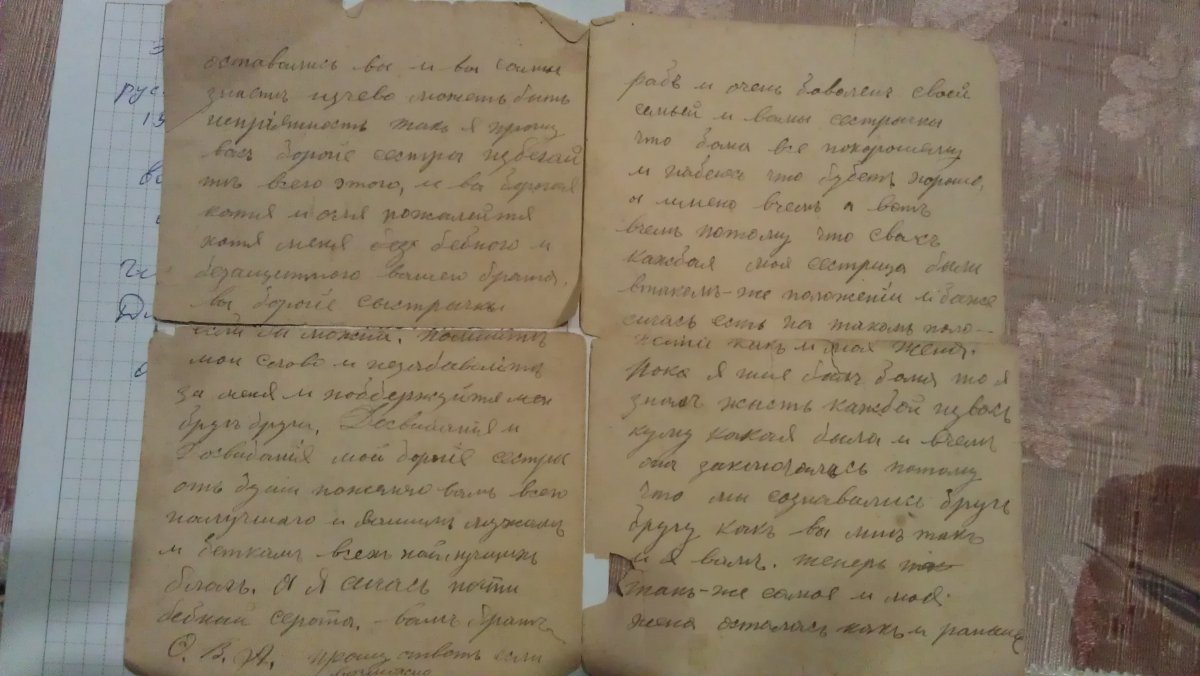 оставались вы и вы сами
знаетъ изчево можетъ быть
непріятность такъ я прошу
васъ дорогіе сестры избегай
тѣ всего этого, и вы дорогая
катя и оля пожалейтя
хотя меня бедного и
безащетного вашего брата,
вы дорогіе сыстрички
мои слово и незабавляйтѣ
за меня и поддержуйтя мои
другъ друга, Досвиданія и
Досвиданія мои дорогіе сестры
отъ души пожелаю вамъ всего
налучшаго и вашимъ мужьямъ
и деткамъ всехъ найлучщихъ
благъ. А я сичасъ почти
бедный серота. - вамъ братъ
О. В. А. прошу ответъ если
рабъ и очень доволенъ своей
семьей и вами сестрички
что дома все похорошему
и надеюсь что будетъ хорошо,
а имено вчемъ а вотъ
вчемъ потому что свасъ
каждая моя сестрица были
втакомъ-же положеніи и даже
сичасъ есть на такомъ поло-
женіи какъ и моя жена.
Пока я жив былъ дома то я
зналъ жисть каждой извасъ
кому какая была и вчемъ
она заключалась потому
что мы сознавались другъ
другу какъ вы мнѣ такъ
и я вамъ. теперь
такъ-же самоя и моя
жена осталась какъ и раньше